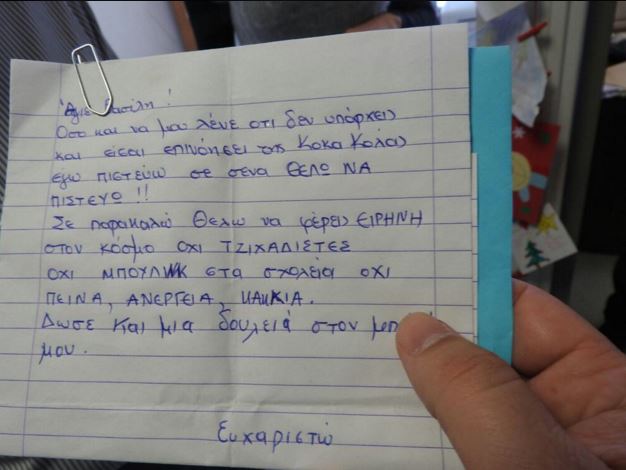 Άγιε Βασίλη!
Οσο και να μου λένε οτι δεν υπάρχεις
και είσαι επινόησει της Κοκα Κολας
εγω πιστεύω σε σενα ΘΕΛΩ ΝΑ
ΠΙΣΤΕΥΩ!!
Σε παρακαλώ Θελω να φέρεις ΕΙΡΗΝΗ
στον κόσμο ΟΧΙ ΤΖΙΧΑΔΙΣΤΕΣ
ΟΧΙ ΜΠΟΥΛΙΝΚ στα σχολεία ΟΧΙ
ΠΕΙΝΑ, ΑΝΕΡΓΕΙΑ, ΚΑΚΚΙΑ.
Δωσε και μια δουλειά στον
μου.
Ευχαριστώ